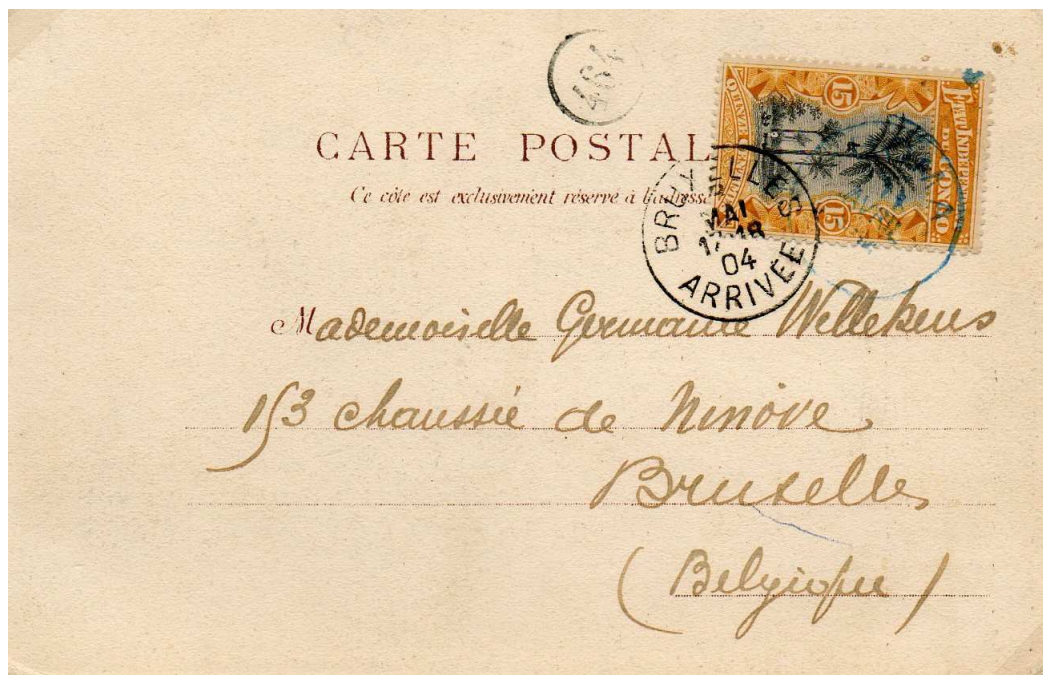 464
CARTE POSTAL
Ce côté est exclusivement réservé à l'adresse
ETAT INDÉP
DU CONGO
15
15
QUINZE
BRUXELLES
MAI
18
04
ARRIVÉE
Mademoiselle Germaine Wellekens
153 chaussée de Ninove
Bruxelles
(Belgique)